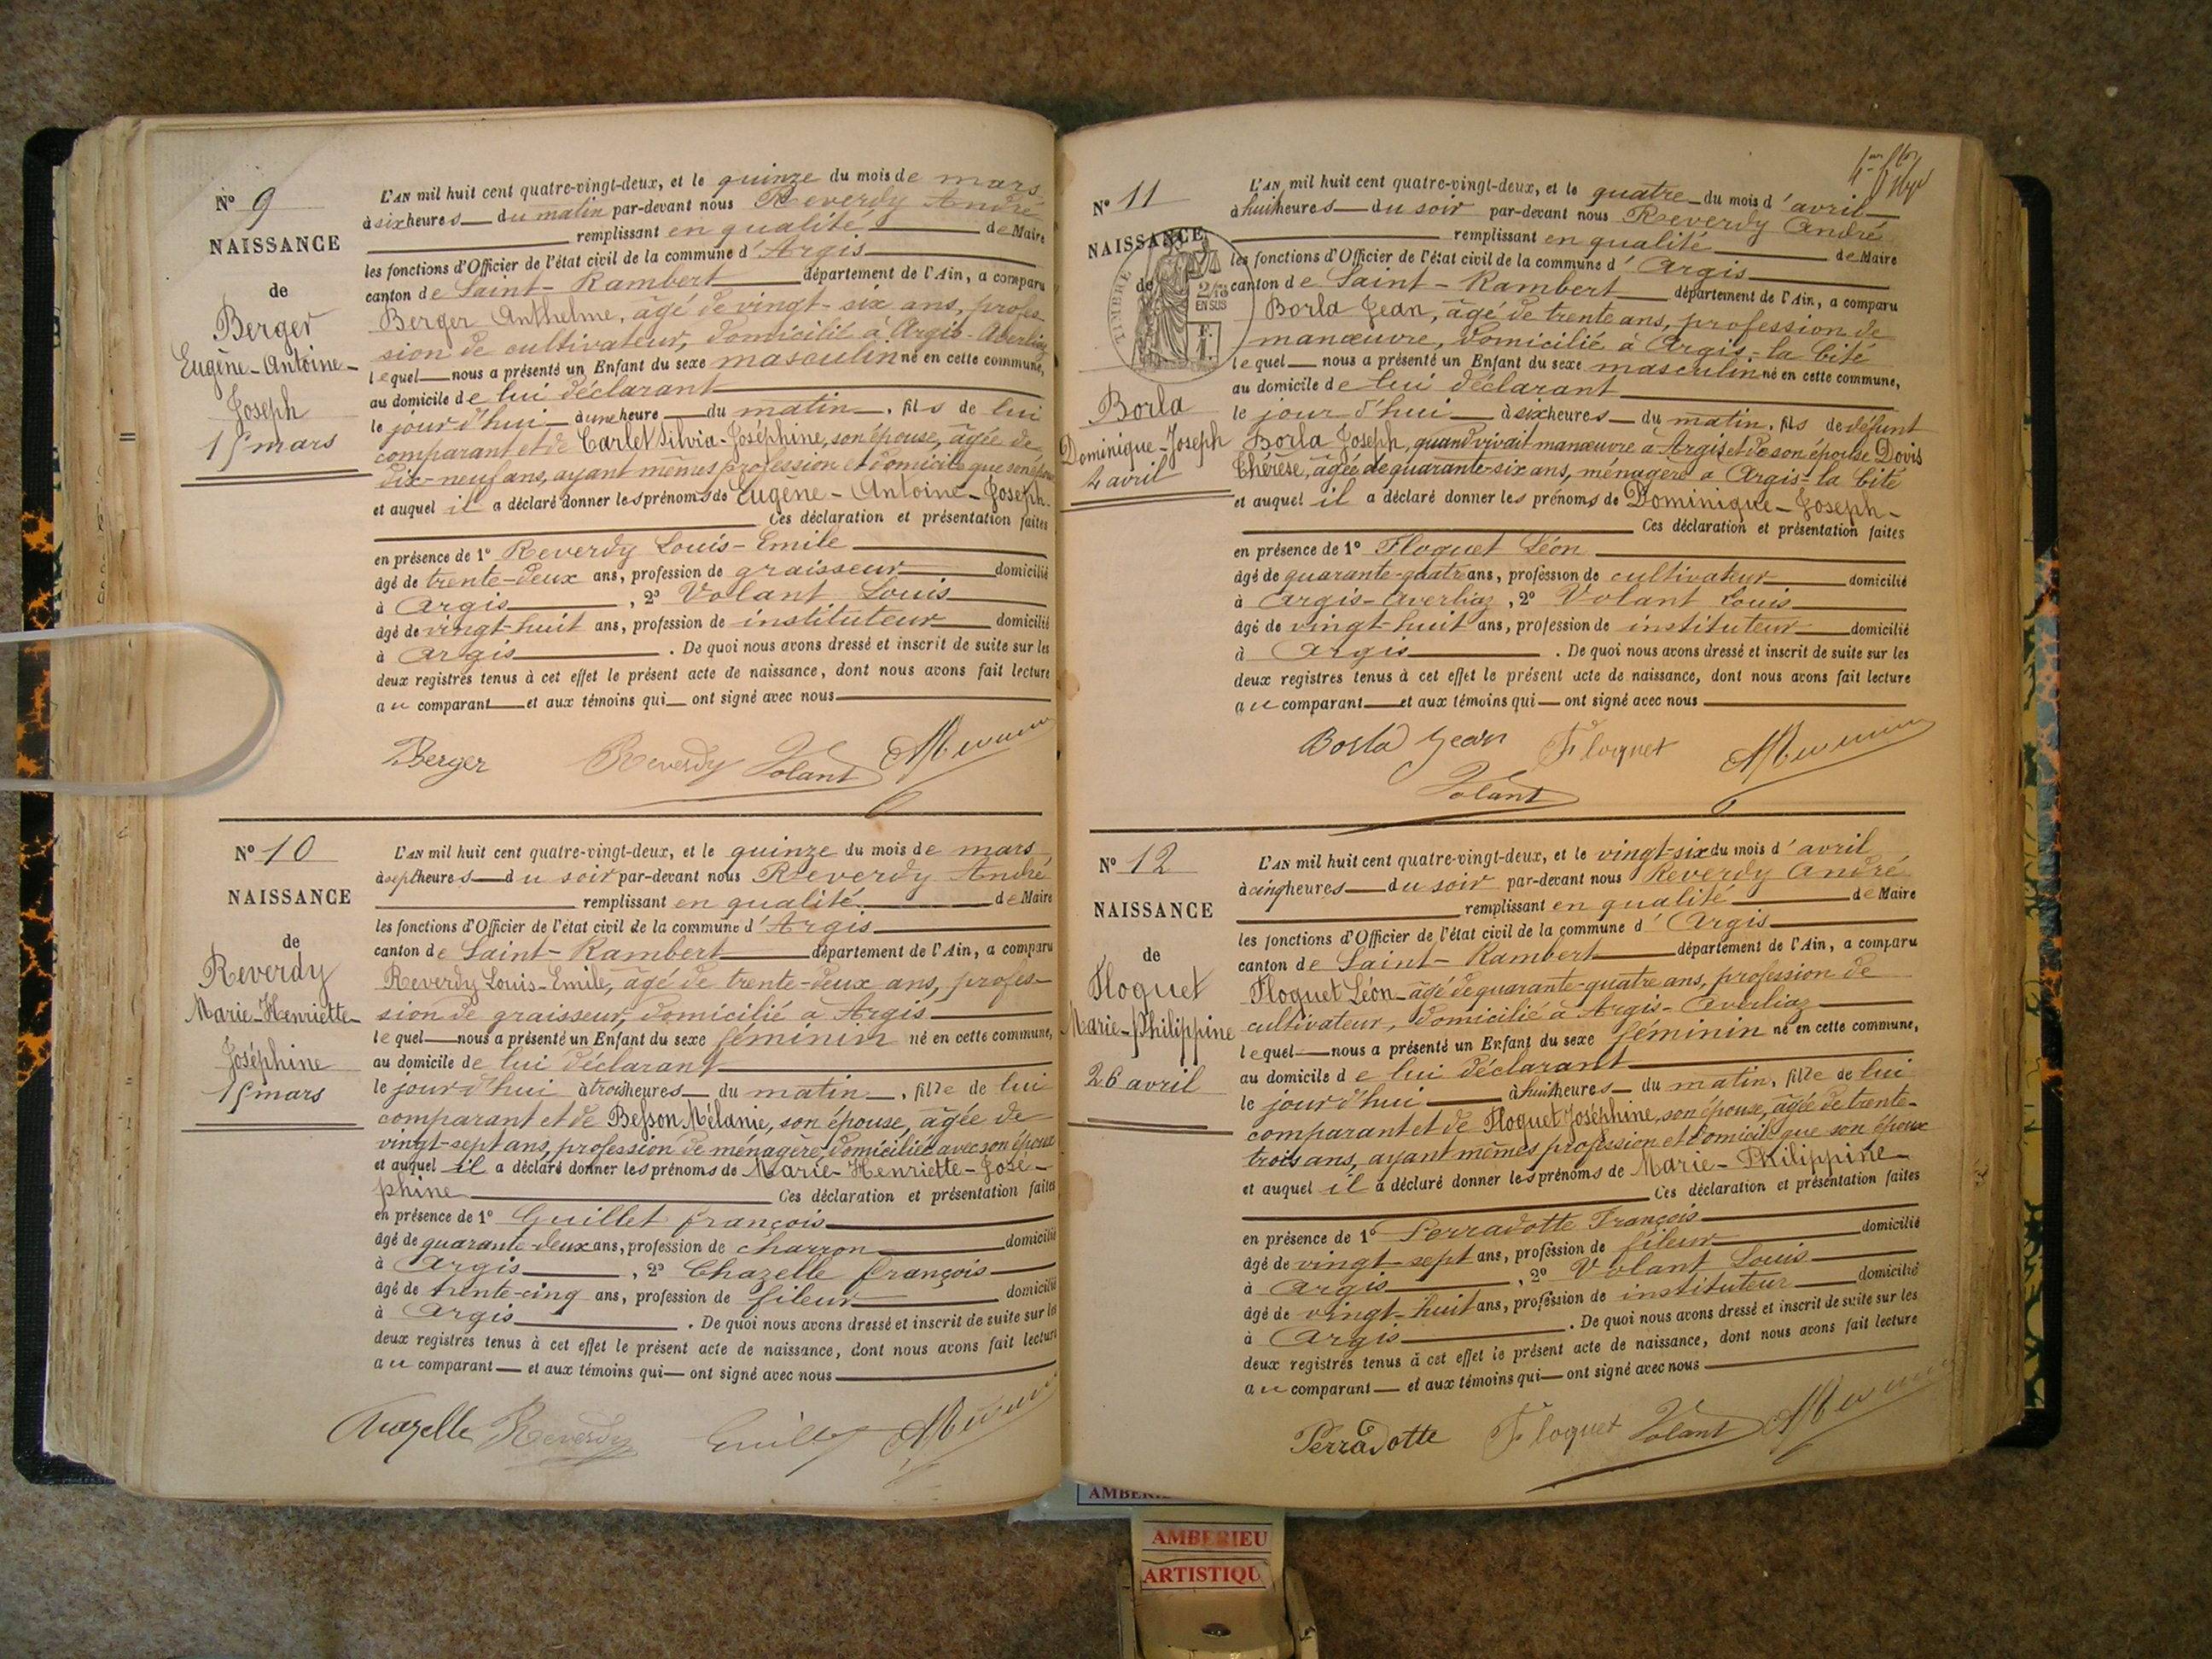 N° 9
NAISSANCE
de
Berger
Eugène-Antoine-
Joseph
15 mars
L'AN mil huit cent quatre-vingt-deux, et le quinze du mois de mars
à six heures du matin par-devant nous Reverdy André
remplissant en qualité de Maire
les fonctions d'Officier de l'état civil de la commune d'Argis
canton de Saint-Rambert département de l'Ain, a comparu
Berger Anthelme, âgé de vingt-six ans, profes-
sion de cultivateur, domicilié à Argis-Averliaz
lequel nous a présenté un Enfant du sexe masculin né en cette commune,
au domicile de lui déclarant
le jour d'hui à une heure du matin, fils de lui
comparant et de Carlet Silvia-Joséphine, son épouse, âgée de
dix-neuf ans, ayant mêmes profession et domicile que son époux
et auquel il a déclaré donner les prénoms de Eugène-Antoine-Joseph
Ces déclaration et présentation faites
en présence de 1° Reverdy Louis-Emile
âgé de trente-deux ans, profession de graisseur domicilié
à Argis, 2° Volant Louis
âgé de vingt-huit ans, profession de instituteur domicilié
à Argis. De quoi nous avons dressé et inscrit de suite sur les
deux registres tenus à cet effet le présent acte de naissance, dont nous avons fait lecture
au comparant et aux témoins qui ont signé avec nous
Berger Reverdy Volant
N° 10
NAISSANCE
de
Reverdy
Marie-Henriette-
Joséphine
15 mars
L'AN mil huit cent quatre-vingt-deux, et le quinze du mois de mars
à sept heures du soir par-devant nous Reverdy André
remplissant en qualité de Maire
les fonctions d'Officier de l'état civil de la commune d'Argis
canton de Saint-Rambert département de l'Ain, a comparu
Reverdy Louis-Emile, âgé de trente-deux ans, profes-
sion de graisseur, domicilié à Argis
lequel nous a présenté un Enfant du sexe féminin né en cette commune,
au domicile de lui déclarant
le jour d'hui à trois heures du matin, fille de lui
comparant et de Besson Mélanie, son épouse, âgée de
vingt-sept ans, profession de ménagère, domiciliée avec son époux
et auquel il a déclaré donner les prénoms de Marie-Henriette-José-
phine Ces déclaration et présentation faites
en présence de 1° Guillet françois
âgé de quarante-deux ans, profession de charron domicilié
à Argis, 2° Chazelle françois
âgé de trente-cinq ans, profession de fileur domicilié
à Argis. De quoi nous avons dressé et inscrit de suite sur les
deux registres tenus à cet effet le présent acte de naissance, dont nous avons fait lecture
au comparant et aux témoins qui ont signé avec nous
Chazelle Reverdy Guillet
N° 11
NAISSANCE
de
TIMBRE
2/10
EN SUS
Borla
Dominique-Joseph
4 avril
L'AN mil huit cent quatre-vingt-deux, et le quatre du mois d'avril
à huit heures du soir par-devant nous Reverdy André
remplissant en qualité de Maire
les fonctions d'Officier de l'état civil de la commune d'Argis
canton de Saint-Rambert département de l'Ain, a comparu
Borla Jean, âgé de trente ans, profession de
manœuvre, domicilié à Argis-la Cité
lequel nous a présenté un Enfant du sexe masculin né en cette commune,
au domicile de lui déclarant
le jour d'hui à six heures du matin, fils de défunt
Borla Joseph, quand vivait manœuvre à Argis et de son épouse Dovis
Thérèse, âgée de quarante-six ans, ménagère à Argis-la Cité
et auquel il a déclaré donner les prénoms de Dominique-Joseph-
Ces déclaration et présentation faites
en présence de 1° Floquet Léon
âgé de quarante-quatre ans, profession de cultivateur domicilié
à Argis-Averliaz, 2° Volant Louis
âgé de vingt-huit ans, profession de instituteur domicilié
à Argis. De quoi nous avons dressé et inscrit de suite sur les
deux registres tenus à cet effet le présent acte de naissance, dont nous avons fait lecture
au comparant et aux témoins qui ont signé avec nous
Borla Jean Floquet
Volant
N° 12
NAISSANCE
de
Floquet
Marie-Philippine
26 avril
L'AN mil huit cent quatre-vingt-deux, et le vingt-six du mois d'avril
à cinq heures du soir par-devant nous Reverdy André
remplissant en qualité de Maire
les fonctions d'Officier de l'état civil de la commune d'Argis
canton de Saint-Rambert département de l'Ain, a comparu
Floquet Léon âgé de quarante-quatre ans, profession de
cultivateur, domicilié à Argis-Averliaz
lequel nous a présenté un Enfant du sexe féminin né en cette commune,
au domicile de lui déclarant
le jour d'hui à huit heures du matin, fille de lui
comparant et de Floquet Joséphine, son épouse, âgée de trente-
trois ans, ayant mêmes profession et domicile que son époux
et auquel il a déclaré donner les prénoms de Marie-Philippine
Ces déclaration et présentation faites
en présence de 1° Perradotte François
âgé de vingt-sept ans, profession de fileur domicilié
à Argis, 2° Volant Louis
âgé de vingt-huit ans, profession de instituteur domicilié
à Argis. De quoi nous avons dressé et inscrit de suite sur les
deux registres tenus à cet effet le présent acte de naissance, dont nous avons fait lecture
au comparant et aux témoins qui ont signé avec nous
Perradotte Floquet Volant
AMBERIEU
ARTISTIQU